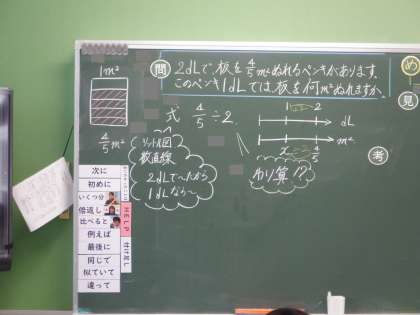 問 2dLで板を4/5m²ぬれるペンキがあります。
このペンキ1dLでは、板を何m²ぬれますか。
め
見
考
1m²
4/5m²
式 4/5÷2
1 2
dL
m²
x 4/5
数直線
2dLで〜だから
1dLなら〜
わり算!?
次に
初めに
いくつ分
倍返し
比べると
例えば
最後に
同じで
似ていて
違って
HELP
付け足し